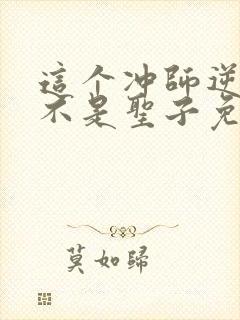 這个冲師逆
不是聖子免
莫如歸